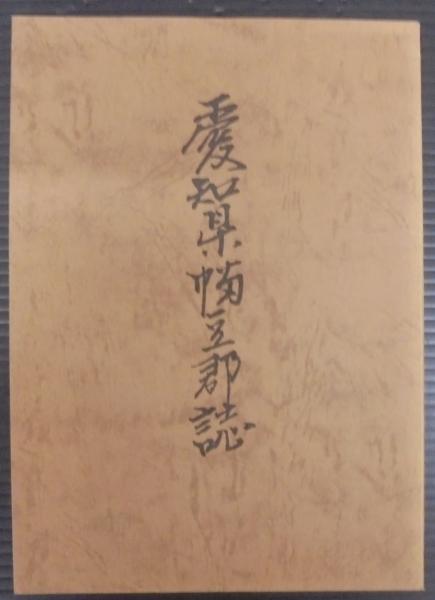 愛知県幡豆郡誌